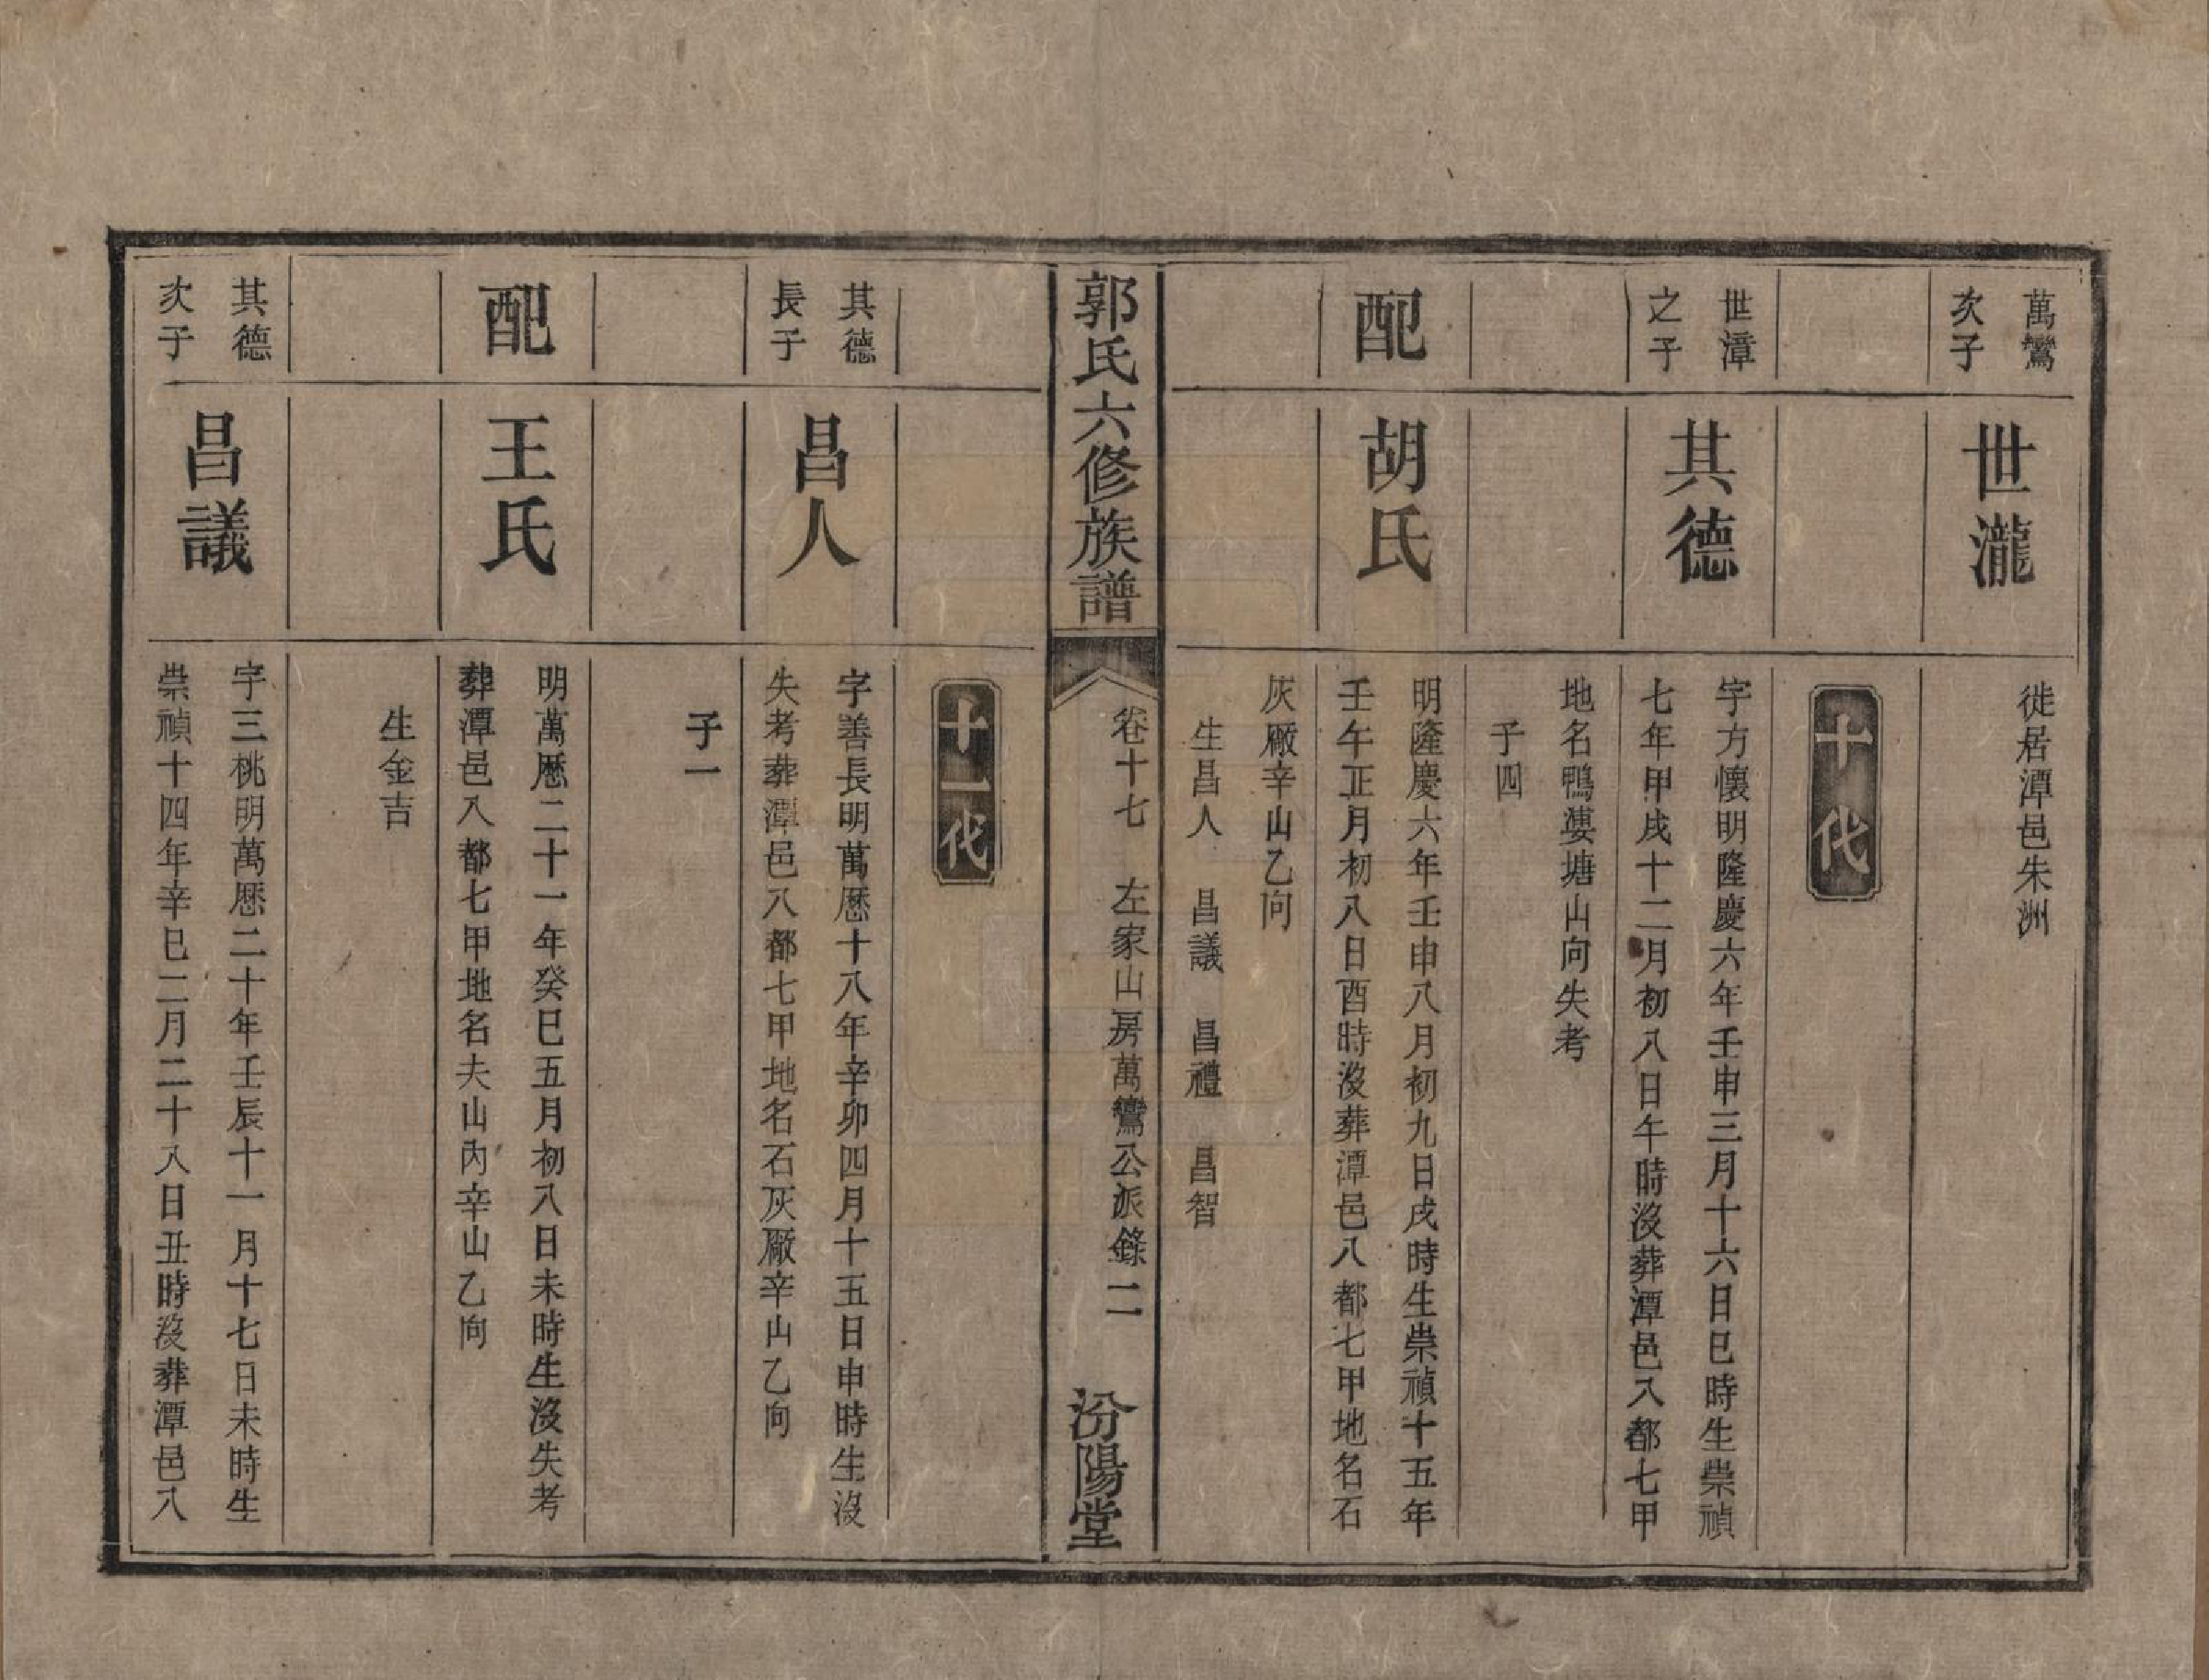 萬鸞
次子
世瀧
徙居潭邑朱洲
十代
世漳
之子
其德
字方懷明隆慶六年壬申三月十六日巳時生崇禎
七年甲戌十二月初八日午時沒葬潭邑八都七甲
地名鴨婆塘山向失考
子四
配
胡氏
明隆慶六年壬申八月初九日戌時生崇禎十五年
壬午正月初八日酉時沒葬潭邑八都七甲地名石
灰廠辛山乙向
生昌人 昌議 昌禮 昌智
郭氏六修族譜
卷十七 左家山房萬鸞公派錄 二
汾陽堂
十一代
其德
長子
昌人
字善長明萬曆十八年辛卯四月十五日申時生沒
失考葬潭邑八都七甲地名石灰廠辛山乙向
子一
配
王氏
明萬曆二十一年癸巳五月初八日未時生沒失考
葬潭邑八都七甲地名夫山內辛山乙向
生金吉
其德
次子
昌議
字三桃明萬曆二十年壬辰十一月十七日未時生
崇禎十四年辛巳二月二十八日丑時沒葬潭邑八